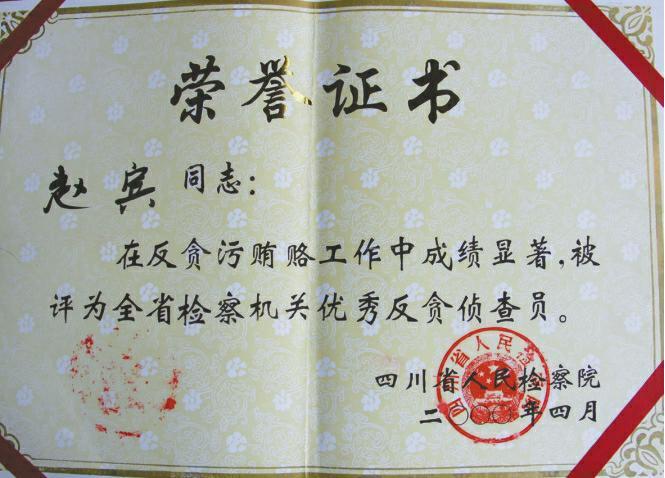 荣誉证书
赵宾 同志：
在反贪污贿赂工作中成绩显著，被
评为全省检察机关优秀反贪侦查员。
四川省人民检察院
二〇〇〇年四月